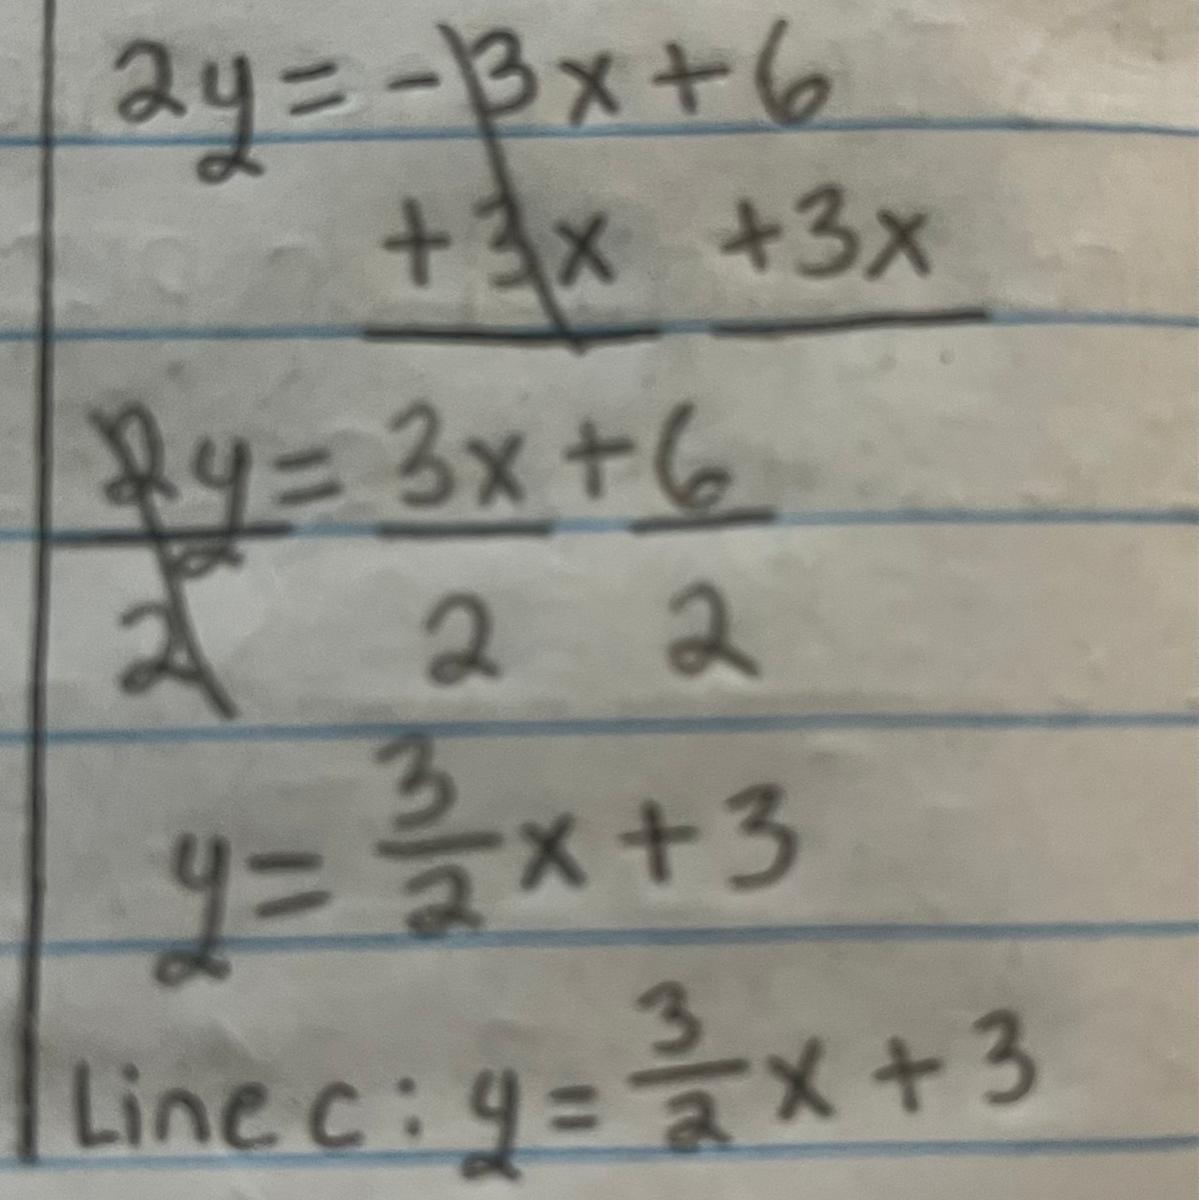 2y = -3x + 6
+3x +3x
2y = 3x + 6
2 2 2
y = 3/2 x + 3
Line c: y = 3/2 x + 3